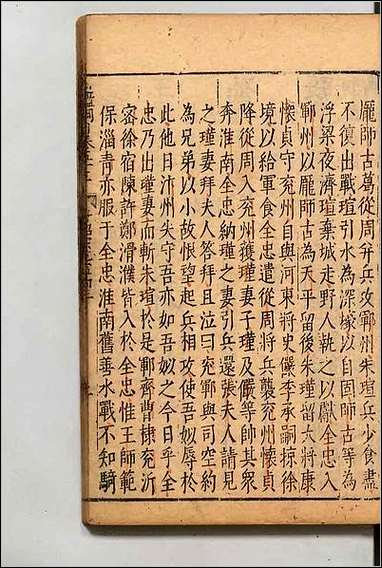 龐師古葛從周并兵攻鄆州朱瑄兵少食盡
不復出戰瑄引水為深壕以自固師古等為
浮梁夜濟瑄棄城走野人執之以獻全忠入
鄆州以龐師古為天平留後朱瑾留大將康
懷貞守兗州自與河東將史儼李承嗣掠徐
境以給軍食全忠遣從周將兵襲兗州懷貞
降從周入兗州獲瑾妻子瑾及儼等帥其衆
奔淮南全忠納瑾之妻引兵還張夫人請見
之瑾妻拜夫人答拜且泣曰兖鄆與司空約
為兄弟以小故恨望起兵相攻使吾姒辱於
此他日汴州失守吾亦如吾姒之今日乎全
忠乃出瑾妻而斬朱瑄於是鄆齊曹棣兖沂
密徐宿陳許鄭滑濮皆入於全忠惟王師範
保淄青亦服于全忠淮南舊善水戰不知騎